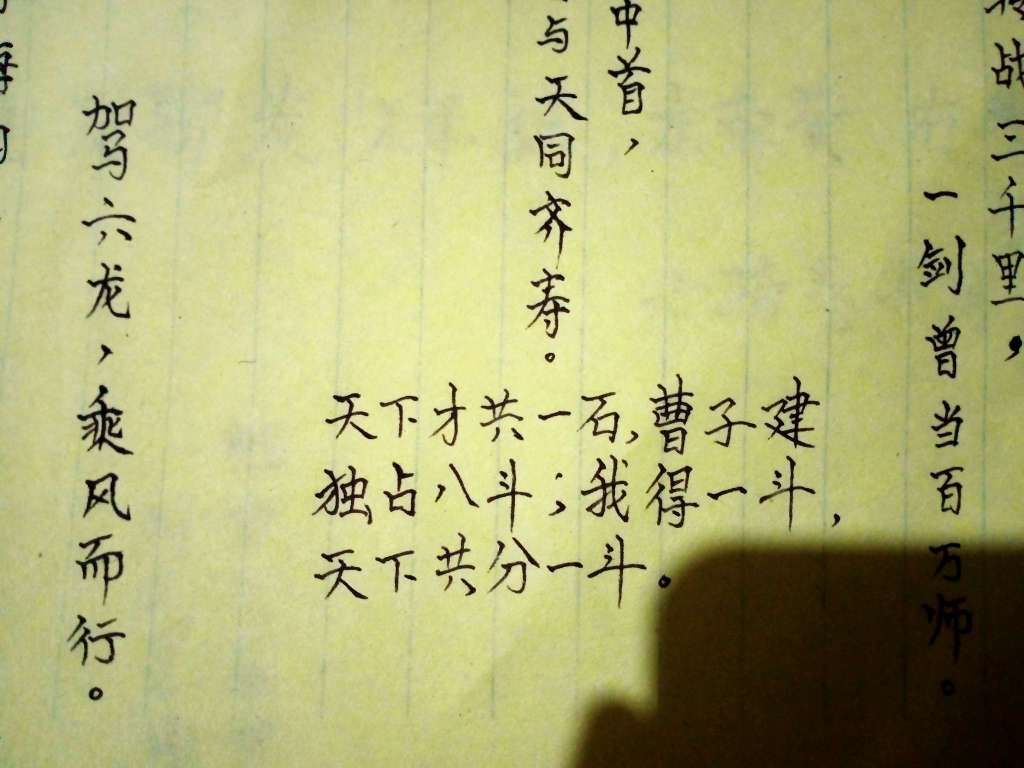 战三千里，
一剑曾当百万师。
中首，
与天同齐寿。
天下才共一石，曹子建
独占八斗；我得一斗，
天下共分一斗。
驾六龙，乘风而行。